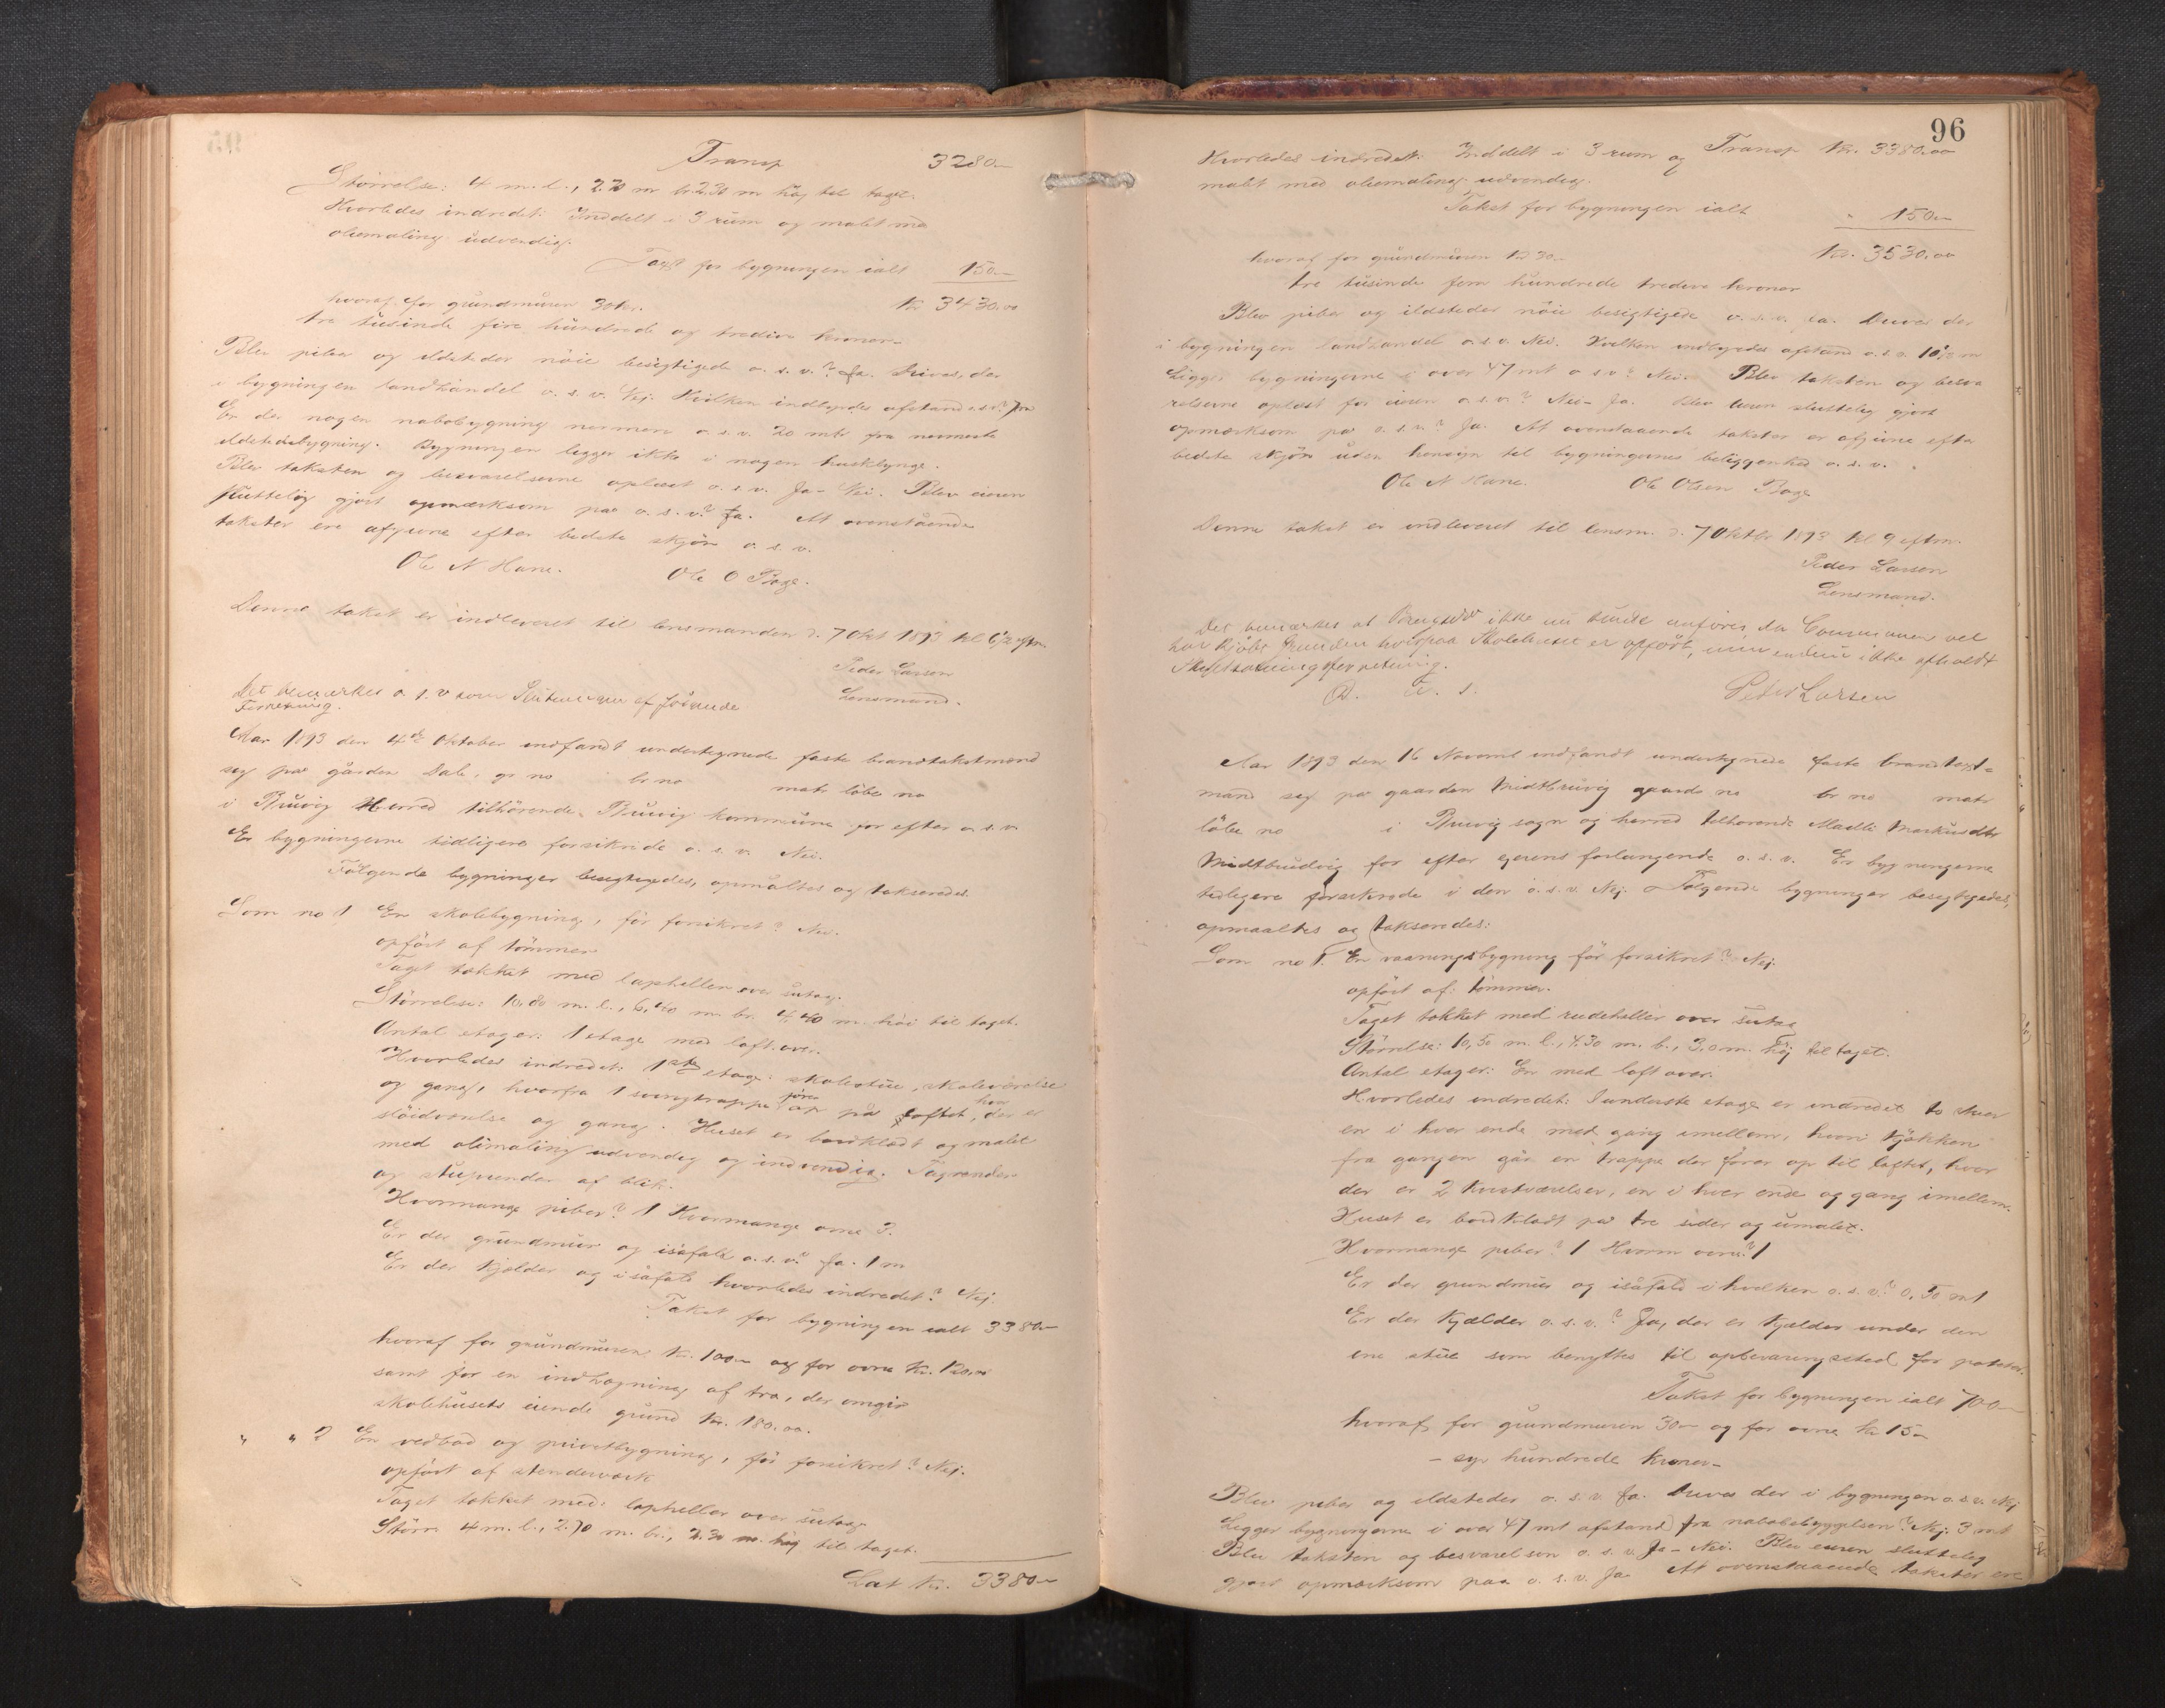 Transp 3280.–
Størrelse: 4 m. l., 2.70 m br. 2.30 m høj til taget.
Hvorledes indredet: Inddelt i 3 rum og malet med
oliemaling udvendig.
Taxt for bygningen ialt 150.–
hvoraf for grundmuren 30 kr. Kr 3430.00
tre tusinde fire hundrede og tredive kroner.–
Blev piber og ildsteder nöie besigtigede o. s. v.? Ja. Drives der
i bygningen landhandel o. s. v. Nej. Hvilken indbyrdes afstand o.s.v.?
Er der nogen nabobygning nærmere o. s. v. 20 mtr fra nærmeste
ildstedsbygning. Bygningen legger ikke i nogen husklynge.
Blev taksten og besvarelserne oplæst o. s. v. Ja – Nei. Blev eieren
sluttelig gjort opmærksom paa o. s. v.? Ja. At ovenstående
takster ere afgivne efter bedste skjön o. s. v.
Ole N Hane. Ole O Boge.
Denne takst er indleveret til lensmanden d. 7 Okt 1893 kl 6½ eftm.
Peder Larsen
Lensmand.
Det bemærkes o. s. v som af
Forretning.
Aar 1893 den 4de Oktober indfandt undertegnede faste brandtakstmænd
sig paa gården Dale, gr no br no matr löbe no
i Bruvig Herred tilhörende Bruvig kommune for efter o. s. v
Er bygningerne tidligere forsikrede o. s. v. Nei.
Fölgende bygninger besigtigedes, opmåltes og takseredes.
Som no 1 En skolebygning, för forsikret? Nei.
opfört af tömmer
Taget tækket med lapheller over sutag.
Störrelse: 10,80 m. l., 6,40 m. br. 4,40 m. höi til taget.
Antal etager: 1 etage med loft over.
Hvorledes indredet: 1ste etage: skolestue, skoleværelse
og gang, hvorfra 1 svingtrappe förer op på loftet, hvor der er
slöidværelse og gang. Huset er bordklædt og malet
med oliemaling udvendig og indvendig. Tagrender
og stuprender af blik.
Hvormange piber? 1 Hvormange ovne 3.
Er der grundmur og isåfald o. s. v.? Ja. 1 m
Er der kjælder og isåfald hvorledes indredet? Nej.
Takst for bygningen ialt 3380.–
hvoraf for grundmuren kr. 100.– og for ovne kr. 120,00
samt for en indhægning af træ, der omgir
skolehusets eiende grund kr. 180.00.
" " 2 En vedbod og privetbygning, för forsikret? Nej.
opfört af stenderværk
Taget tækket med: lapheller over sutag
Störr. 4 m. l., 2.70 m. br., 2.30 m. höj til taget.
Lat Kr. 3380.–
96
Hvorledes indredet: Inddelt i 3 rum og Transp Kr. 3380.00
malet med oliemaling udvendig.
Takst for bygningen ialt " 150.–
hvoraf for grundmuren kr 30.– Kr. 3530.00
tre tusinde fem hundrede tredive kroner
Blev piber og ildsteder nöie besigtigede o. s. v. Ja. Drives der
i bygningen landhandel o. s. v. Nei. Hvilken indbyrdes afstand o. s. v. 10½ m
Ligger bygningerne i over 47 mt o s v? Nei. Blev taksten og besva
relserne oplæst for eieren o. s. v? Nei – Ja. Blev eieren sluttelig gjort
opmærksom på o. s. v.? Ja. At ovenstaaende takster er afgivne efter
bedste skjön uden hensyn til bygningernes beliggenhed o. s. v.
Ole N Hane. Ole Olsen Boge
Denne takst er indleveret til lensm. d. 7 Oktbr 1893 kl 9 eftm.
Peder Larsen
Lensmand.
Det bemærkes at Brugsno ikke nu kunde anföres, da Communen vel
har kjöbt Grunden hvorpaa Skolehuset er opfört, men endnu ikke afholdt
Skyldsætningsforretning.
D. u. s. Peder Larsen
Aar 1893 den 16 Novembr indfandt undertegnede faste brandtaxt-
mænd sig paa gaarden Midtbruvig gaards no br no matr
löbe no i Bruvig sogn og herred tilhörende Madli Markusdtr
Midtbrudvig for efter ejerens forlangende o. s. v. Er bygningerne
tidligere forsikrede i den o. s. v. Nej. Fölgende bygninger besigtigedes,
opmaaltes og takseredes:
Som no 1. En vaaningsbygning för forsikret? Nej.
opfört af: tömmer.
Taget tækket med rudeheller over sutag
Störrelse: 10,50 m. l., 4.30 m. b., 3.0 m. höj til taget.
Antal etager: En med loft over.
Hvorledes indredet: I underste etage er indredet to stuer
en i hver ende med gang imellem, hvori kjökken
fra gangen går en trappe der förer op til loftet, hvor
der er 2 kvistværelser, en i hver ende og gang imellem.
Huset er bordklædt på tre sider og umalet.
Hvormange piber? 1 Hvorm ovne? 1
Er der grundmur og isåfald i hvilken o. s. v.? 0,50 mt
Er der kjælder o. s. v.? Ja, der er kjælder under den
ene stue som benyttes til opbevaringssted for poteter.
Takst for bygningen ialt 700.–
hvoraf for grundmuren 30.– og for ovne kr 15.–
– syv hundrede kroner –
Blev piber og ildsteder o. s. v. Ja. Drives der i bygningen o. s. v. Nej
Ligger bygningerne i over 47 mt afstand fra nabobebyggelsen? Nej. 3 mt
Blev taksten og besvarelsen o. s. v. Ja – Nei. Blev eieren sluttelig
gjort opmærksom paa o. s. v. Ja At ovenstaaende takster ere